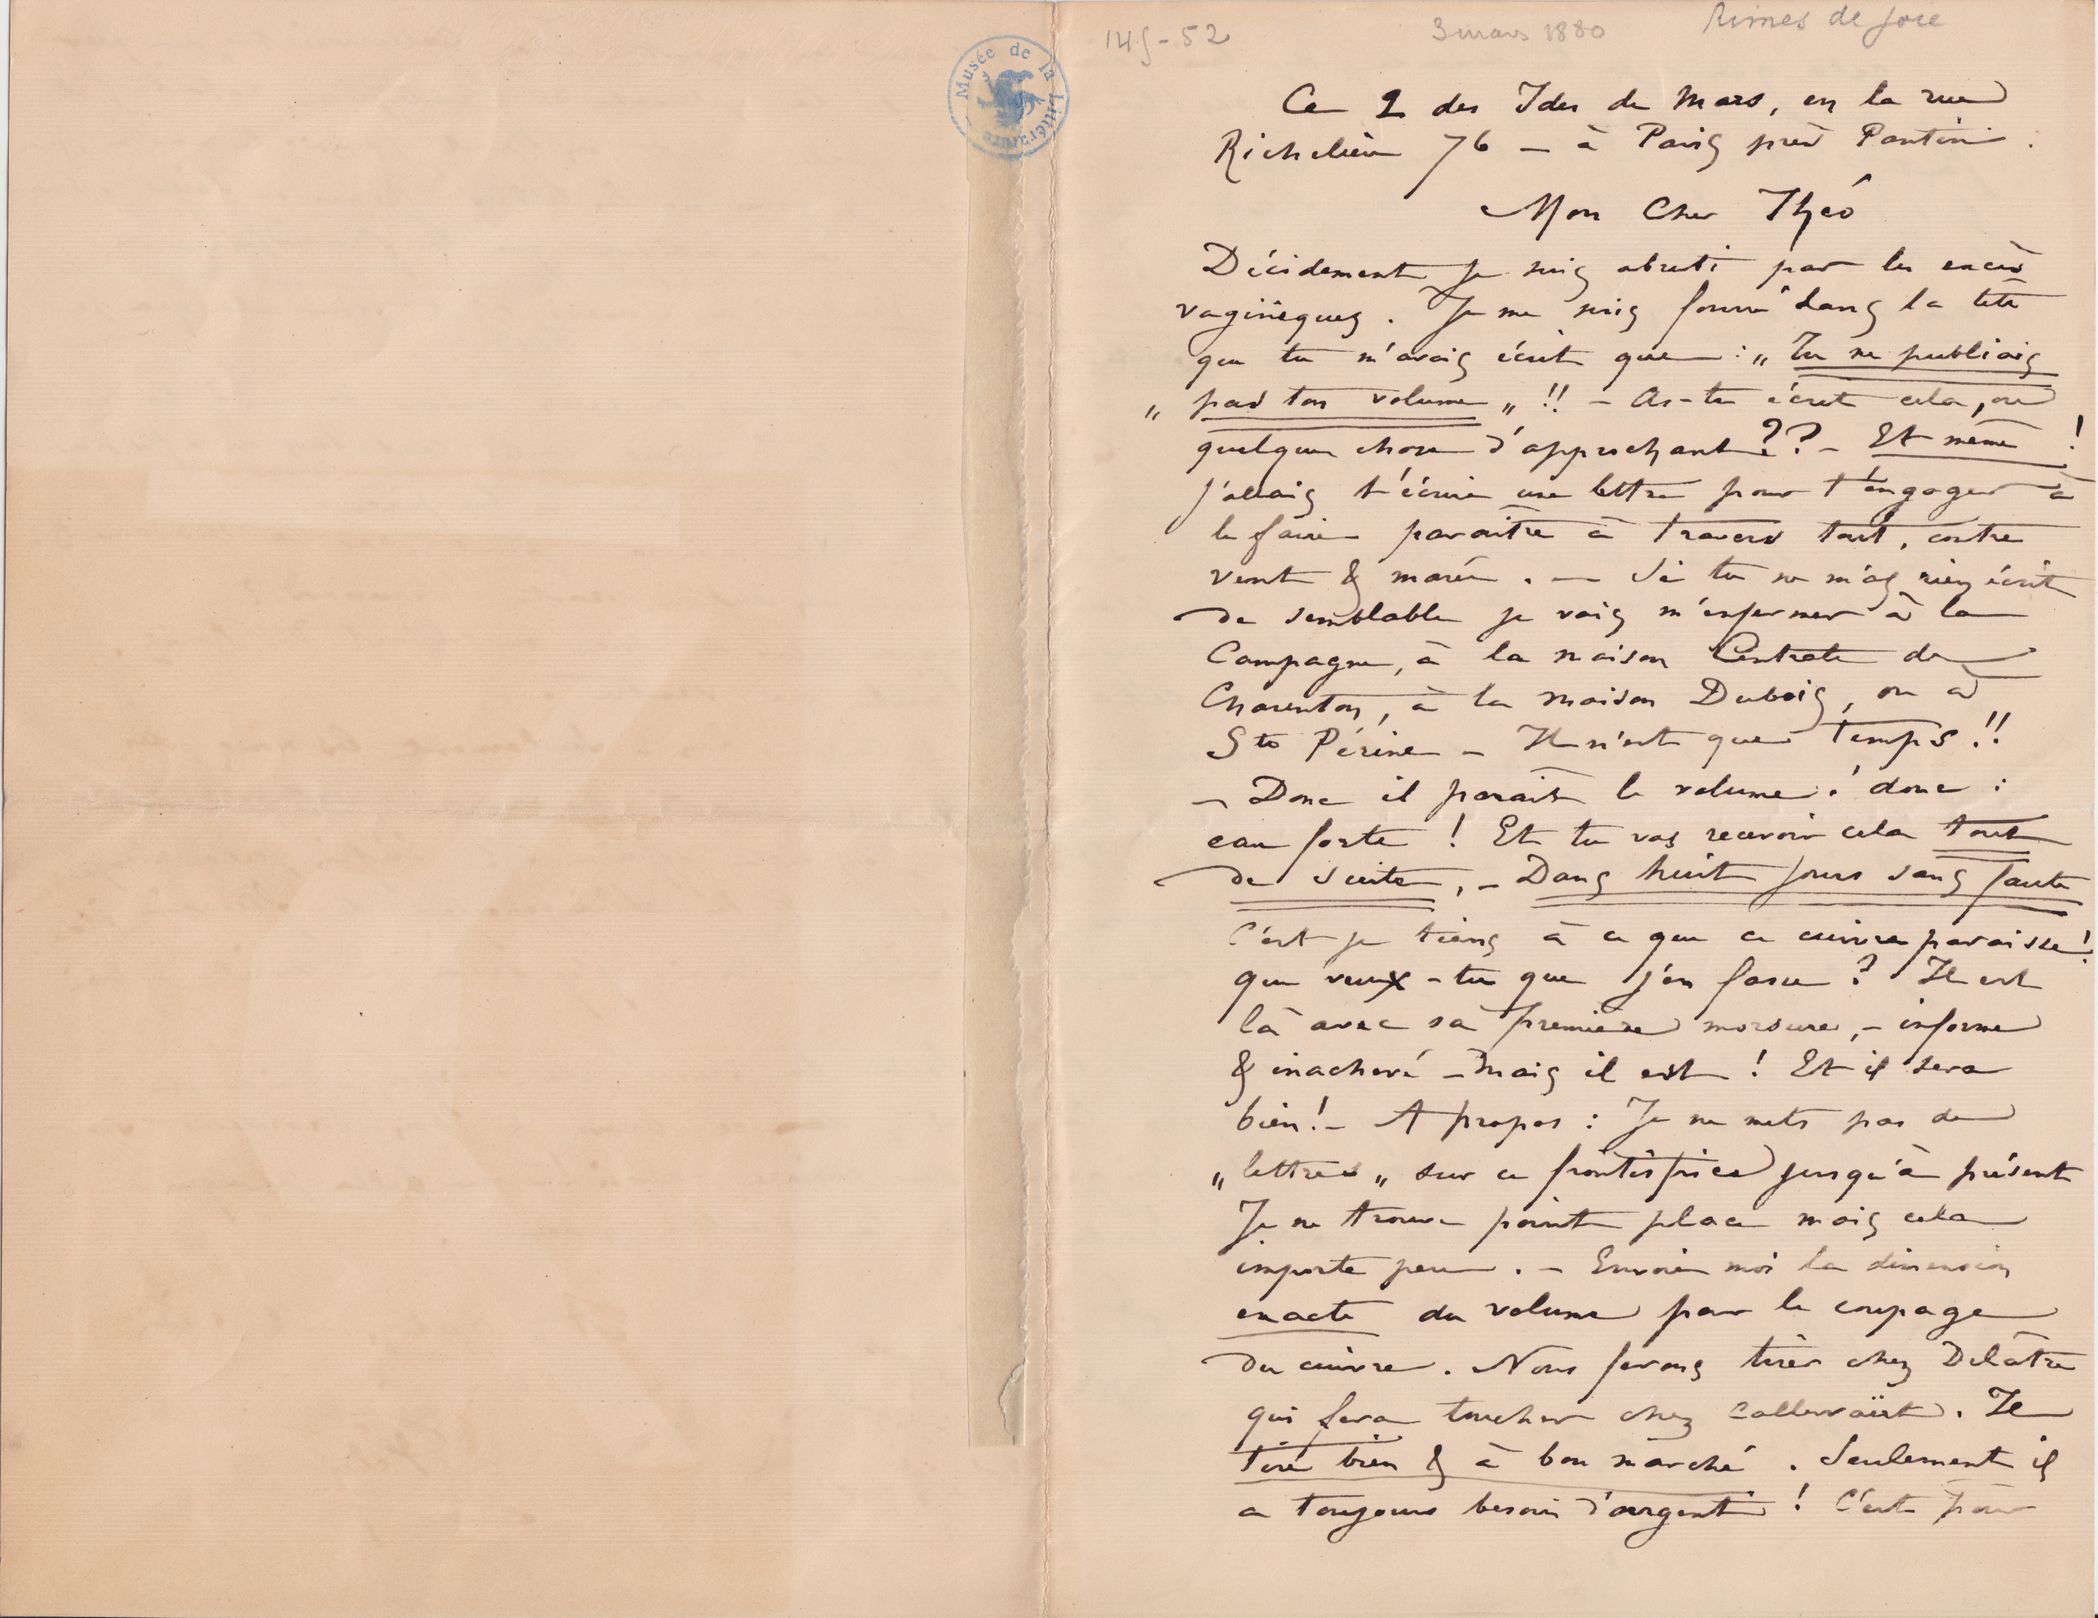 149-52
3 mars 1880
Rimes de Joie
Musée de la Littérature
Ce 2 des Ides de Mars, en la rue
Richelieu 76 — à Paris près Pantin.
Mon Cher Théo
Décidement je suis abruti par les excès
vaginiques. Je me suis fourré dans la tête
que tu m'avais écrit que : „ Tu ne publiais
„ pas ton volume „ !! — As-tu écrit cela, ou
quelque chose d'approchant ?? — Et même !
j'allais t'écrire une lettre pour t'engager à
le faire paraître à travers tout, contre
vent & marée. — Si tu ne m'as rien écrit
de semblable je vais m'enfermer à la
Campagne, à la maison Centrale de
Charenton, à la maison Dubois, ou à
Ste Périne — Il n'est que temps !!
— Donc il paraît le volume ! donc :
eau forte ! Et tu vas recevoir cela tout
de suite, — Dans huit jours sans faute
C'est je tiens à ce que ce cuivre paraisse !
que veux-tu que j'en fasse ? Il est
là avec sa première morsure, — informe
& inachevé — Mais il est ! Et il sera
bien ! — A propos : Je ne mets pas de
„ lettres „ sur ce frontispice jusqu'à présent
Je ne trouve point place mais cela
importe peu. — Envoie moi la dimension
exacte du volume pour le coupage
du cuivre. Nous ferons tirer chez Delâtre
qui fera toucher chez Callewaert. Il
tire bien & à bon marché. Seulement il
a toujours besoin d'argent ! C'est pour